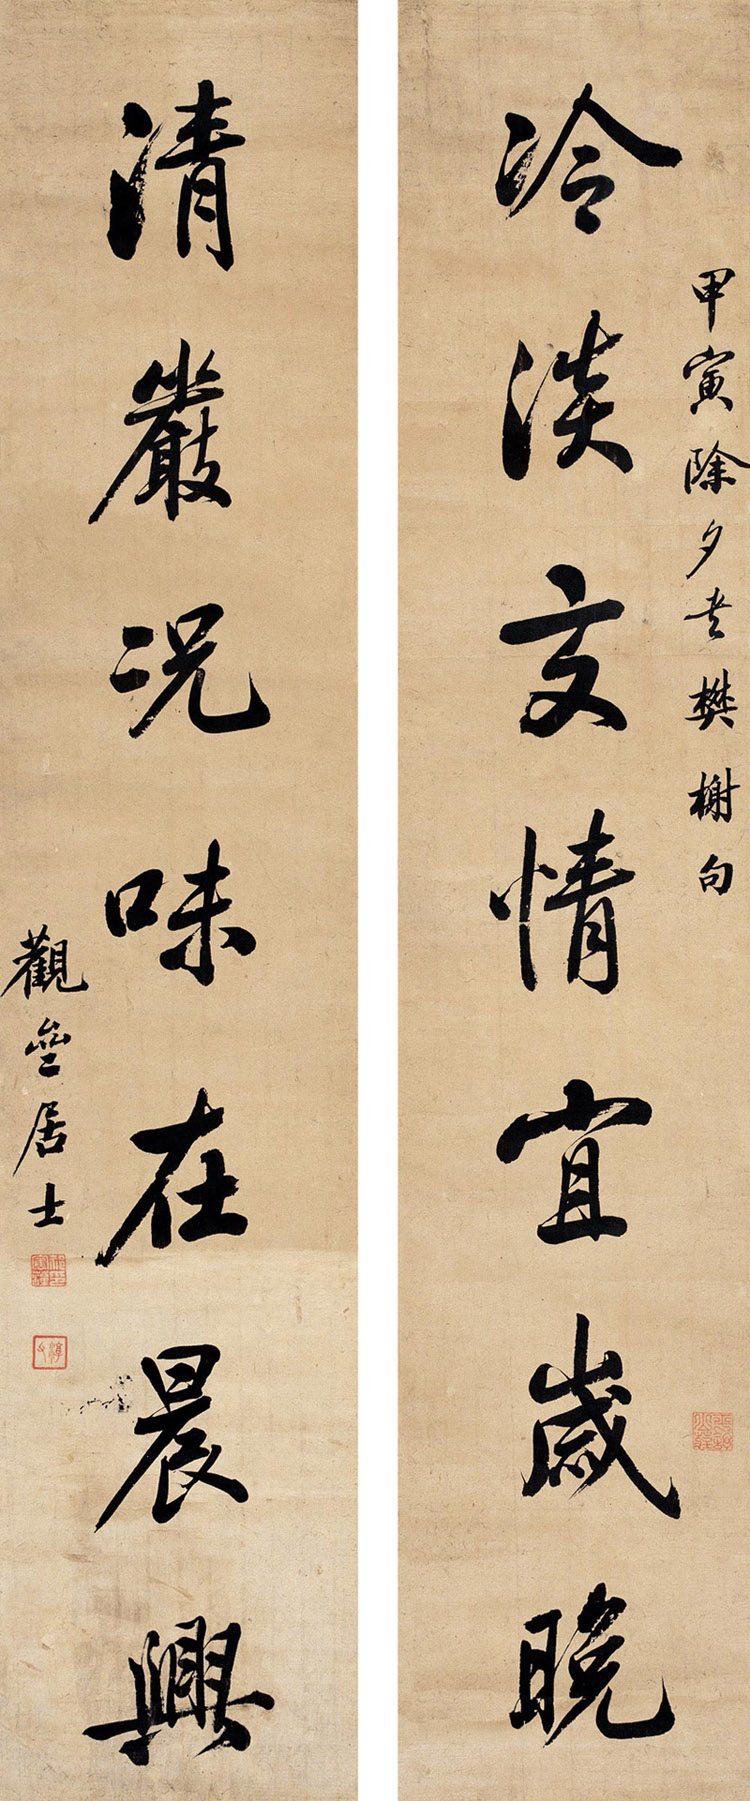 甲寅除夕書樊榭句
冷淡交情宜歲晚
清嚴況味在晨興
觀居士